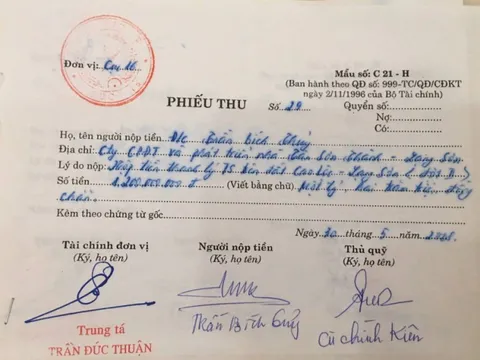 Đơn vị: Cục 16
Mẫu số: C 21 - H
(Ban hành theo QĐ số: 999-TC/QĐ/CĐKT
ngày 2/11/1996 của Bộ Tài chính)
PHIẾU THU
Số 29
Quyển số:
Nợ:
Có:
Họ, tên người nộp tiền: Đ/c Trần Bích Thủy
Địa chỉ: Cty CPĐT và phát triển nhà Tân Sơn Thành - Lạng Sơn
Lý do nộp: Nộp tiền thanh lý TS trên đất Cao Lộc - Lạng Sơn
Số tiền 1.200.000.000 đ (Viết bằng chữ) Một tỷ hai trăm triệu đồng
chẵn.
Kèm theo chứng từ gốc
Ngày 30 tháng 5 năm 2018
Tài chính đơn vị
(Ký, họ tên)
Người nộp tiền
(Ký, họ tên)
Thủ quỹ
(Ký, họ tên)
Trung tá
TRẦN ĐỨC THUẬN
Trần Bích Thủy
Cù Chính Kiên